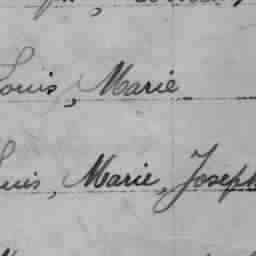 Louis, Marie
Louis, Marie, Joseph